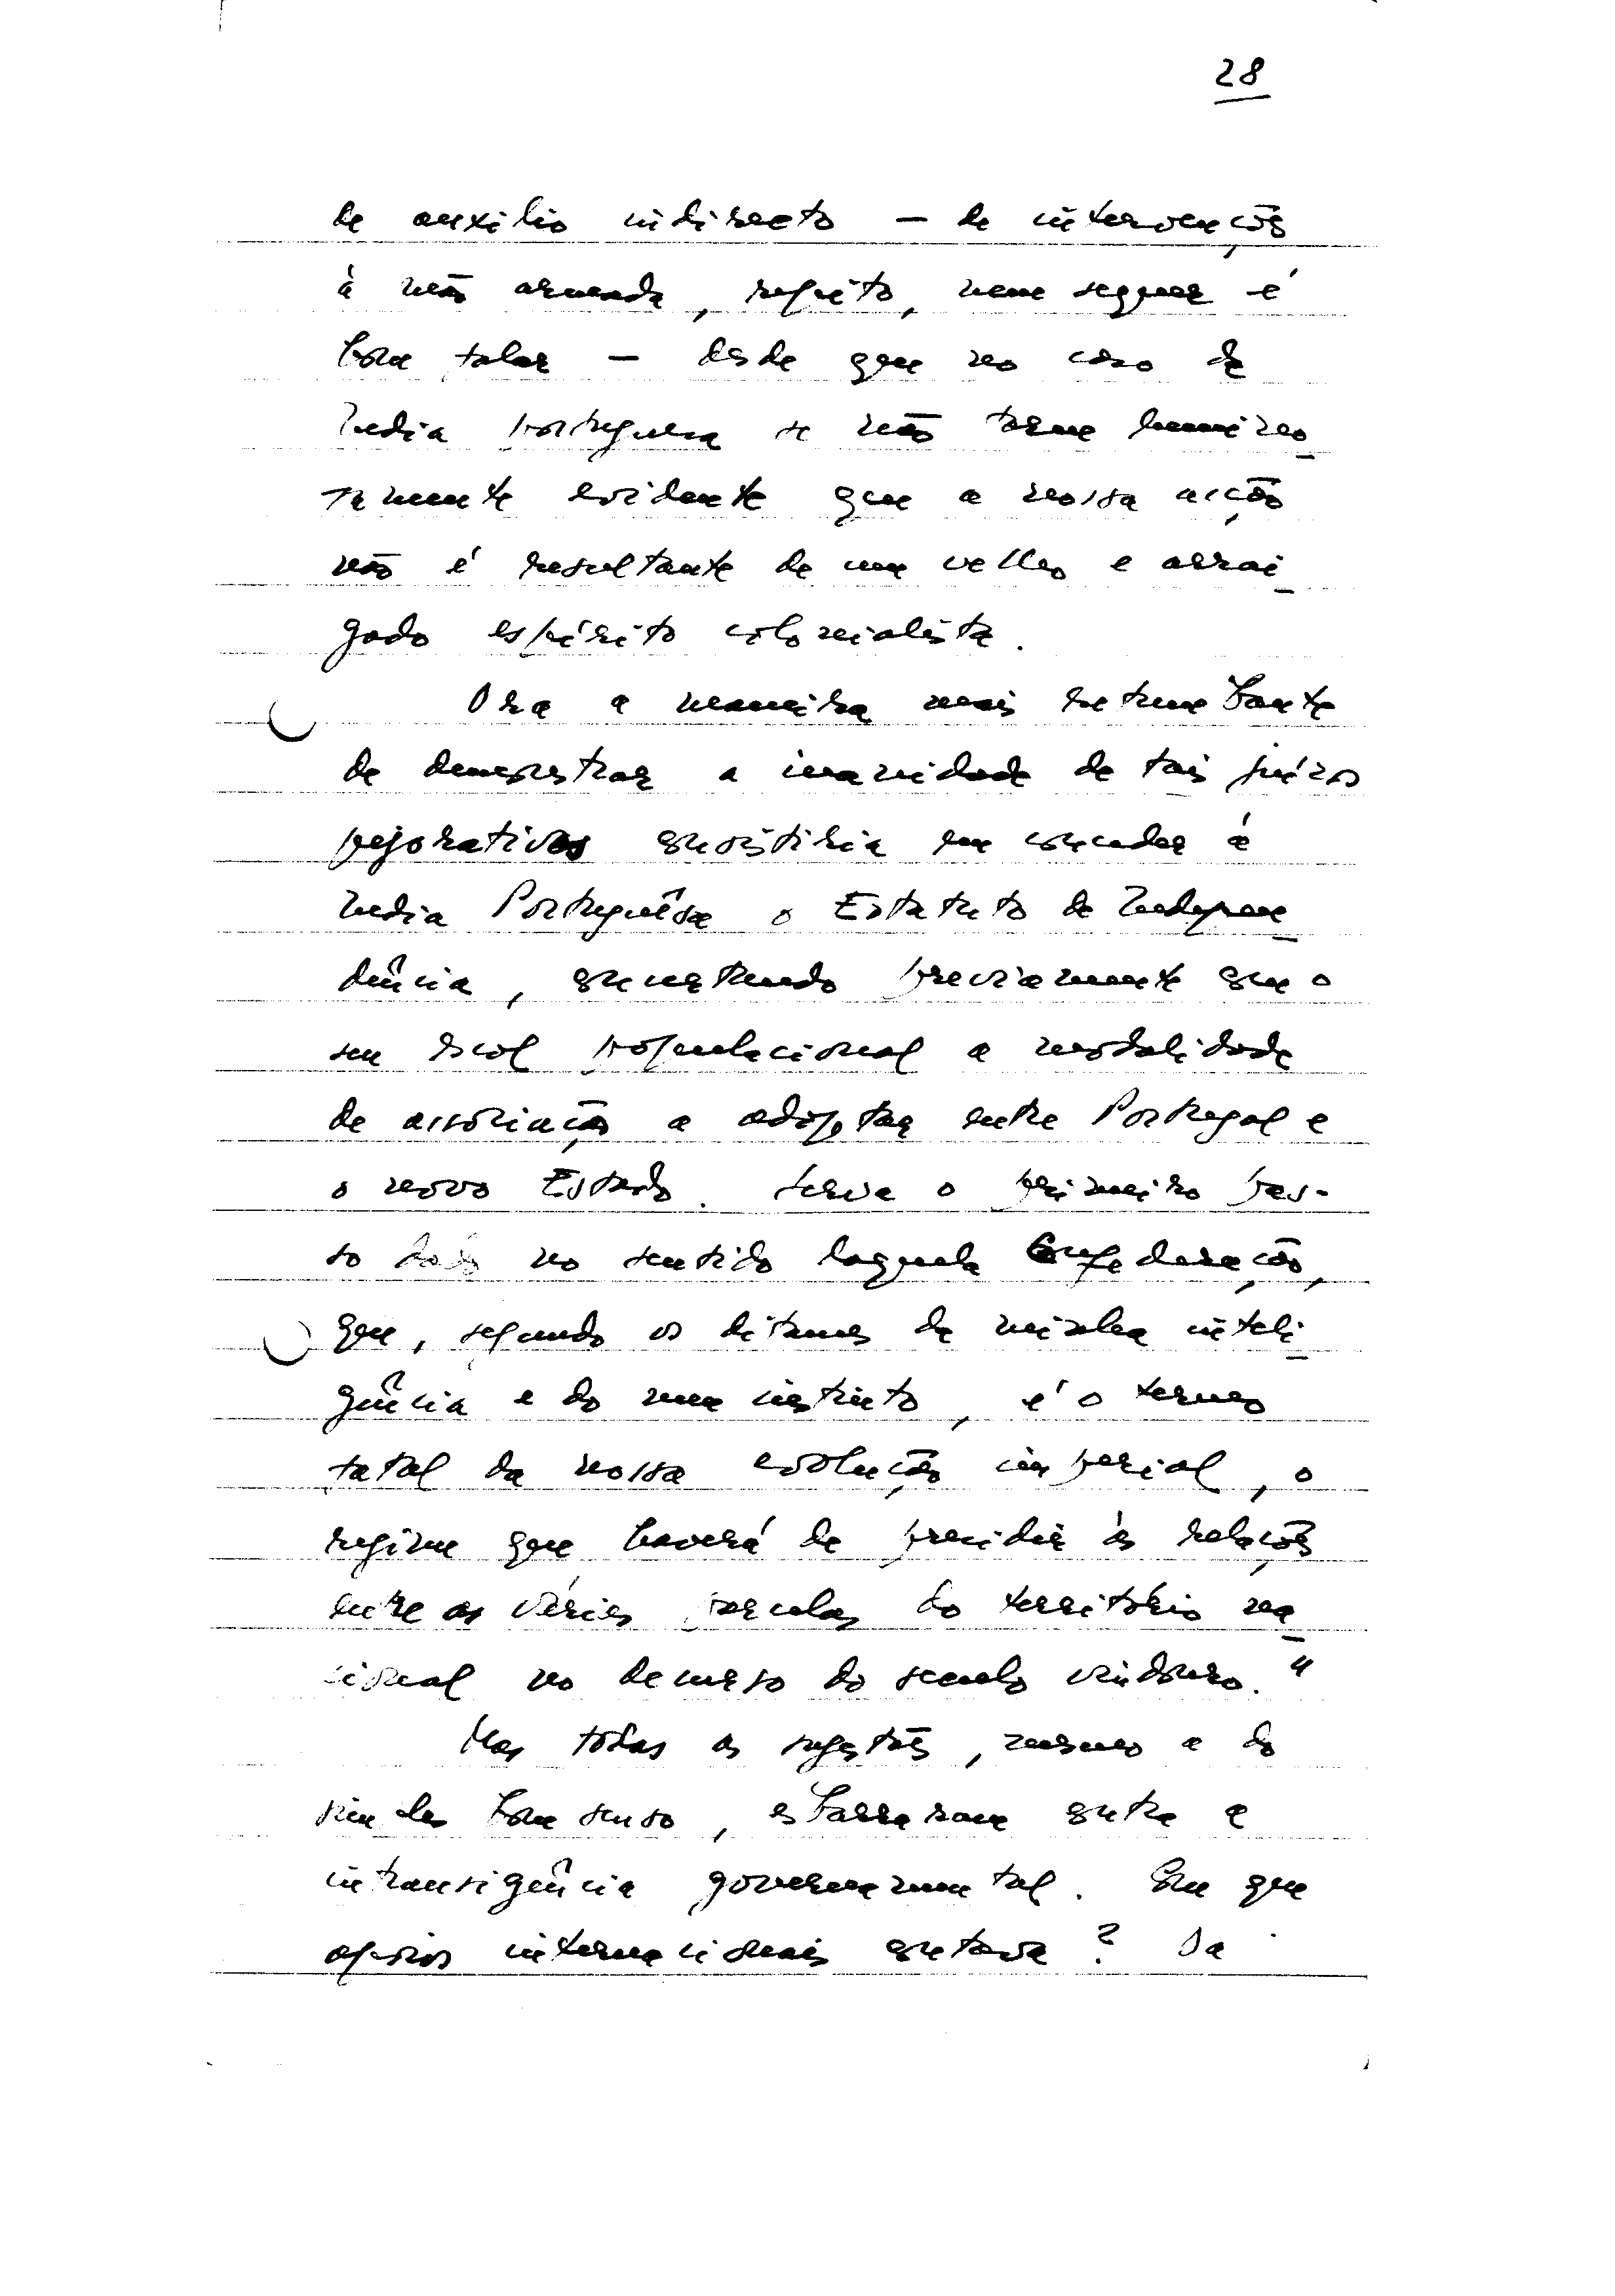 28
de auxilio indirecto — de intervenção
à mão armada, repito, nem sequer é
bom falar — desde que no caso da
India Portuguesa se não torne lumino_
samente evidente que a nossa acção
não é resultante de um velho e arrai_
gado espírito colonialista.
Ora a maneira mais retumbante
de demonstrar a inanidade de tais juízos
pejorativos consistiria em conceder à
India Portuguêsa o Estatuto de Indepen_
dência, concertando previamente com o
seu escol populacional a modalidade
de associação a adoptar entre Portugal e
o novo Estado. Seria o primeiro pas-
so dado no sentido daquela Confederação,
que, segundo os ditames da minha inteli_
gência e do meu instinto, é o termo
fatal da nossa evolução imperial, o
regime que haverá de presidir às relações
entre as várias parcelas do território na_
cional no decurso do seculo vindouro."
Mas todas as sugestões, mesmo a do
simples bom senso, esbarravam contra a
intransigência governamental. Com que
apoios internacionais contava? Da